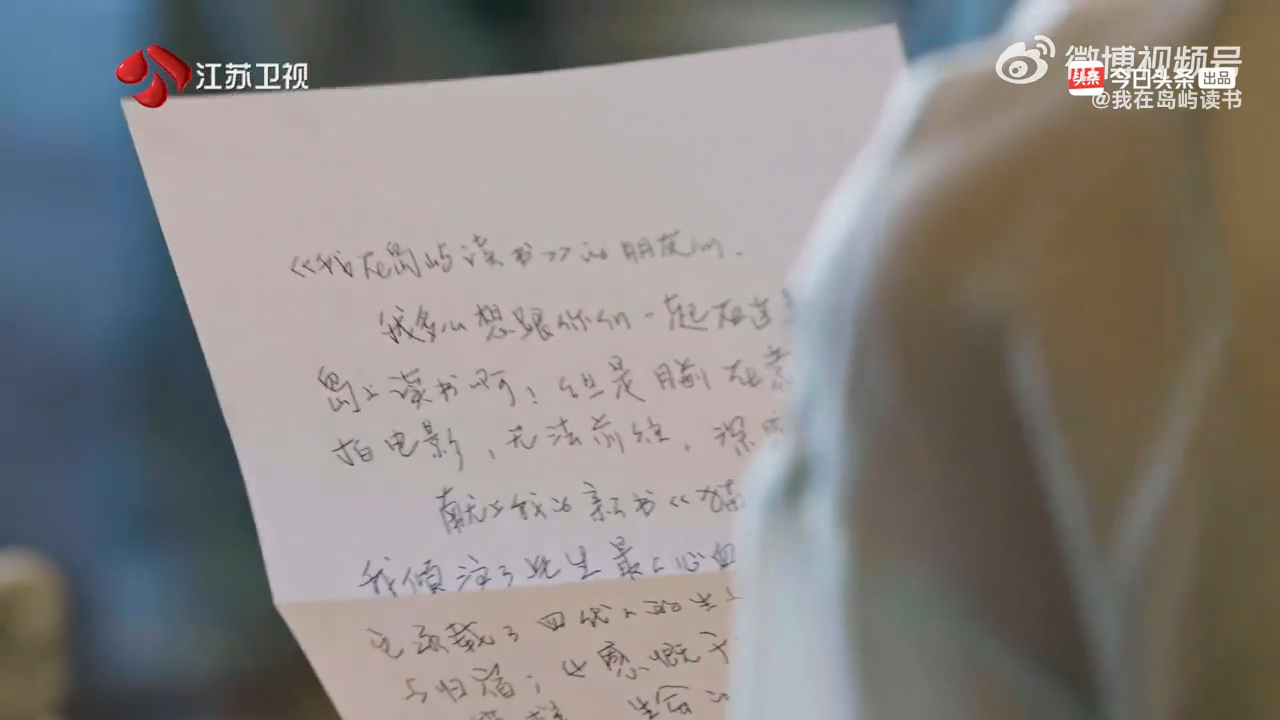 江苏卫视
微博视频号
头条 今日头条 出品
@我在岛屿读书
《我在岛屿读书》的朋友们.
我多么想跟你们一起在这
岛上读书啊!但是目前在
拍电影,无法前往.深
献上我的新书《猫
我倾注了此生最上心血
它承载了四代人的生
与归宿;也感慨于
生命的